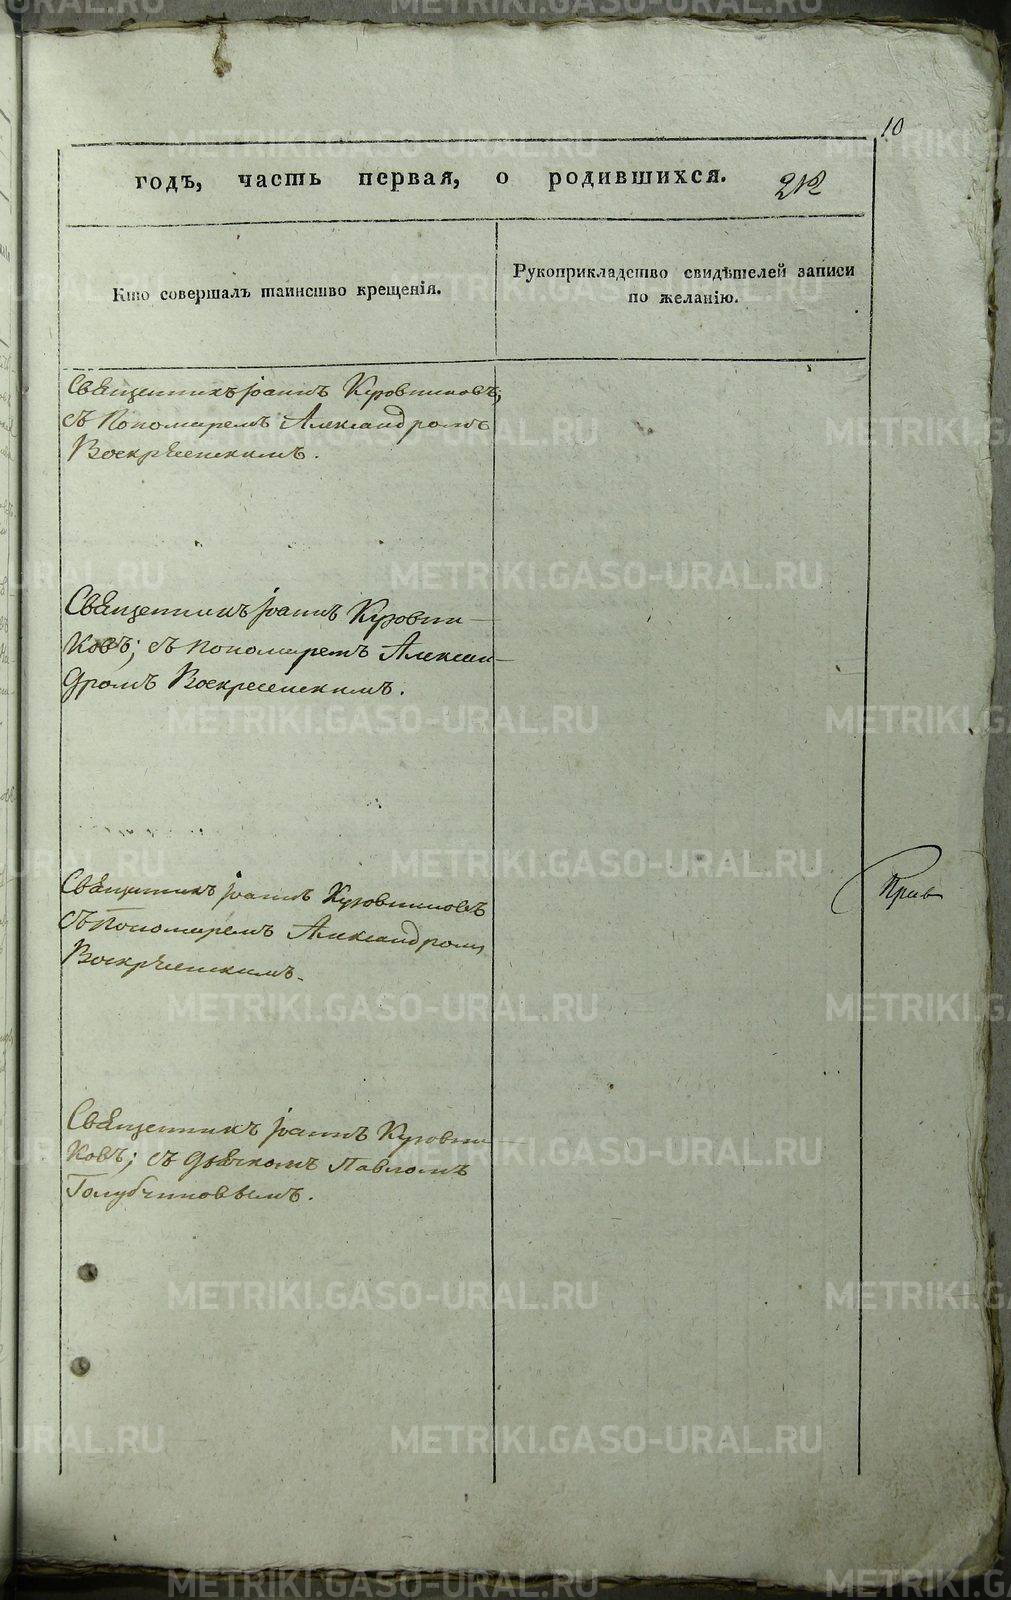 10
годъ, часть первая, о родившихся.
212
Кто совершалъ таинство крещенія.
Рукоприкладство свидѣтелей записи
по желанію.
Священникъ Іоаннъ Кузовниковъ;
съ Пономаремъ Александромъ
Воскресенскимъ.
Священникъ Іоаннъ Кузовни-
ковъ; съ Пономаремъ Алексан-
дромъ Воскресенскимъ.
Священникъ Іоаннъ Кузовниковъ
съ Пономаремъ Александромъ
Воскресенскимъ.
Священникъ Іоаннъ Кузовни-
ковъ; съ Дьячкомъ Павломъ
Голубчиковымъ.
METRIKI.GASO-URAL.RU